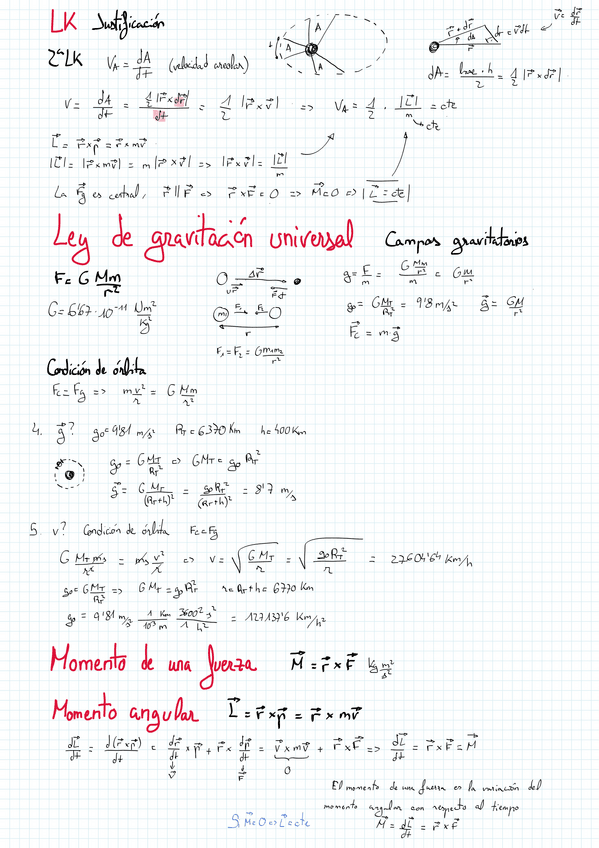 LK Justificación
2ª LK V_A = dA/dt (velocidad areolar)
A A A A
r⃗ + dr⃗ dr⃗ = v⃗dt v⃗ = dr⃗/dt
dA = base · h / 2 = 1/2 |r⃗ × dr⃗|
V = dA/dt = 1/2 |r⃗ × dr⃗| / dt = 1/2 |r⃗ × v⃗| => V_A = 1/2 · |L⃗|/m = cte
→ cte
L⃗ = r⃗ × p⃗ = r⃗ × mv⃗
|L⃗| = |r⃗ × mv⃗| = m |r⃗ × v⃗| => |r⃗ × v⃗| = |L⃗|/m
La F⃗g es central, r⃗ || F⃗ => r⃗ × F⃗ = 0 => M⃗ = 0 => |L⃗ = cte|
Ley de gravitación universal Campos gravitatorios
F = G Mm/r²
G = 6'67 · 10⁻¹¹ Nm²/kg²
Δr⃗
u⃗r F⃗g
m₁ F₂ F₁
r
F₁ = F₂ = G m₁m₂/r²
g = F/m = (G Mm/r²)/m = G M/r²
g₀ = G M_T/R_T² = 9'8 m/s² g⃗ = GM/r²
F⃗c = m · g⃗
Condición de órbita
Fc = Fg => m v²/r = G Mm/r²
4. g⃗? g₀ = 9'81 m/s² R_T = 6370 Km h = 400 Km
g₀ = G M_T/R_T² => G M_T = g₀ R_T²
g⃗ = G M_T/(R_T+h)² = g₀ R_T²/(R_T+h)² = 8'7 m/s
5. v? Condición de órbita Fc = Fg
G M_T m/r² = m v²/r => v = √(G M_T/r) = √(g₀ R_T²/r) = 27604'64 Km/h
g₀ = G M_T/R_T² => G M_T = g₀ R_T² r = R_T + h = 6770 Km
g₀ = 9'81 m/s² 1 Km/10³ m 3600² s²/1 h² = 127137'6 Km/h²
Momento de una fuerza M⃗ = r⃗ × F⃗ kg m²/s²
Momento angular L⃗ = r⃗ × p⃗ = r⃗ × mv⃗
dL⃗/dt = d(r⃗ × p⃗)/dt = dr⃗/dt × p⃗ + r⃗ × dp⃗/dt = v⃗ × mv⃗ + r⃗ × F⃗ => dL⃗/dt = r⃗ × F⃗ = M⃗
v⃗ F⃗ 0
El momento de una fuerza es la variación del
momento angular con respecto al tiempo
Si M⃗ = 0 => L⃗ = cte
M⃗ = dL⃗/dt = r⃗ × F⃗